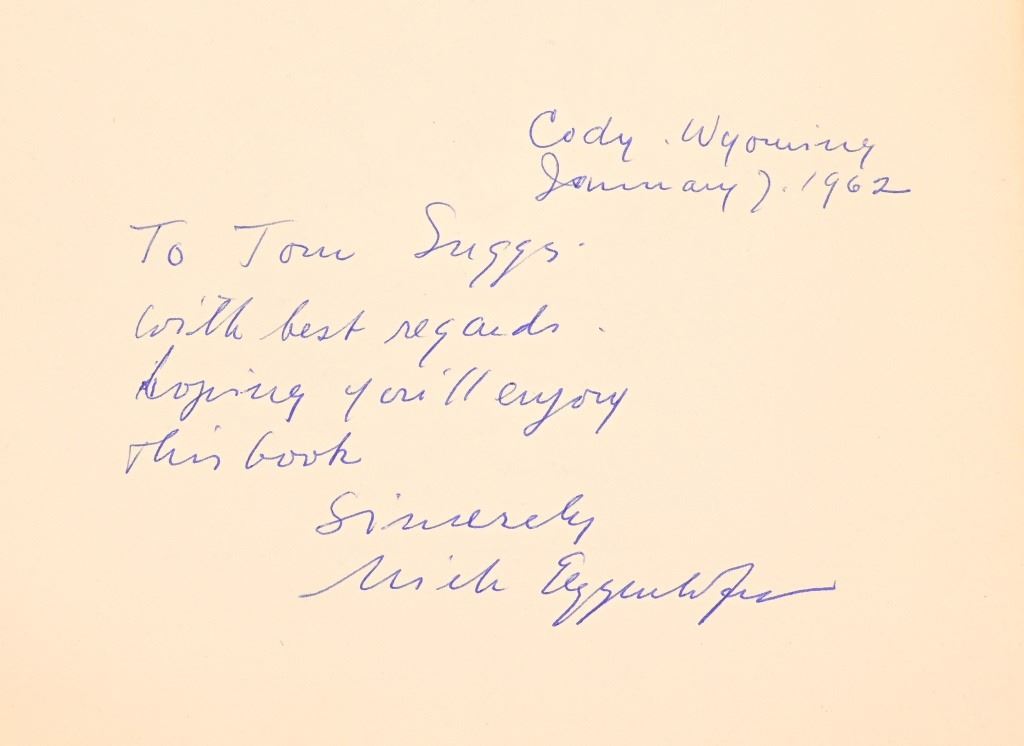 Cody. Wyoming
January 7. 1962
To Tom Suggs.
with best regards.
hoping you'll enjoy
this book
Sincerely
Nick Eggenhofer